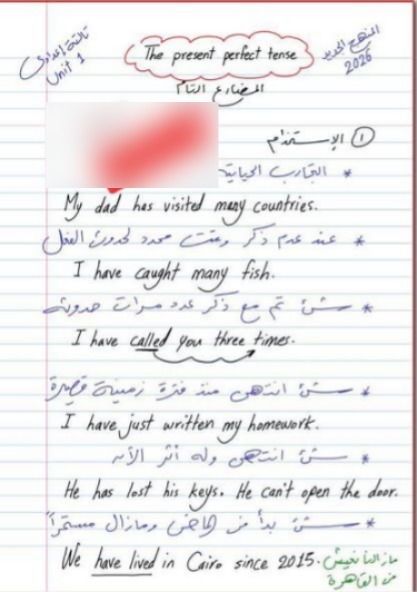 ثالثة إعدادى
Unit 1
The present perfect tense
المنهج الجديد
2026
المضارع التام
① الإستخدام
* التجارب الحياتية
My dad has visited many countries.
* عند عدم ذكر وقت محدد لحدوث الفعل
I have caught many fish.
* شئ تم مع ذكر عدد مرات حدوثه
I have called you three times.
* شئ انتهى منذ فترة زمنية قصيرة
I have just written my homework.
* شئ انتهى وله أثر الآن
He has lost his keys. He can't open the door.
* شئ بدأ فى الماضى ومازال مستمراً
We have lived in Cairo since 2015. مازلنا نعيش
فى القاهرة